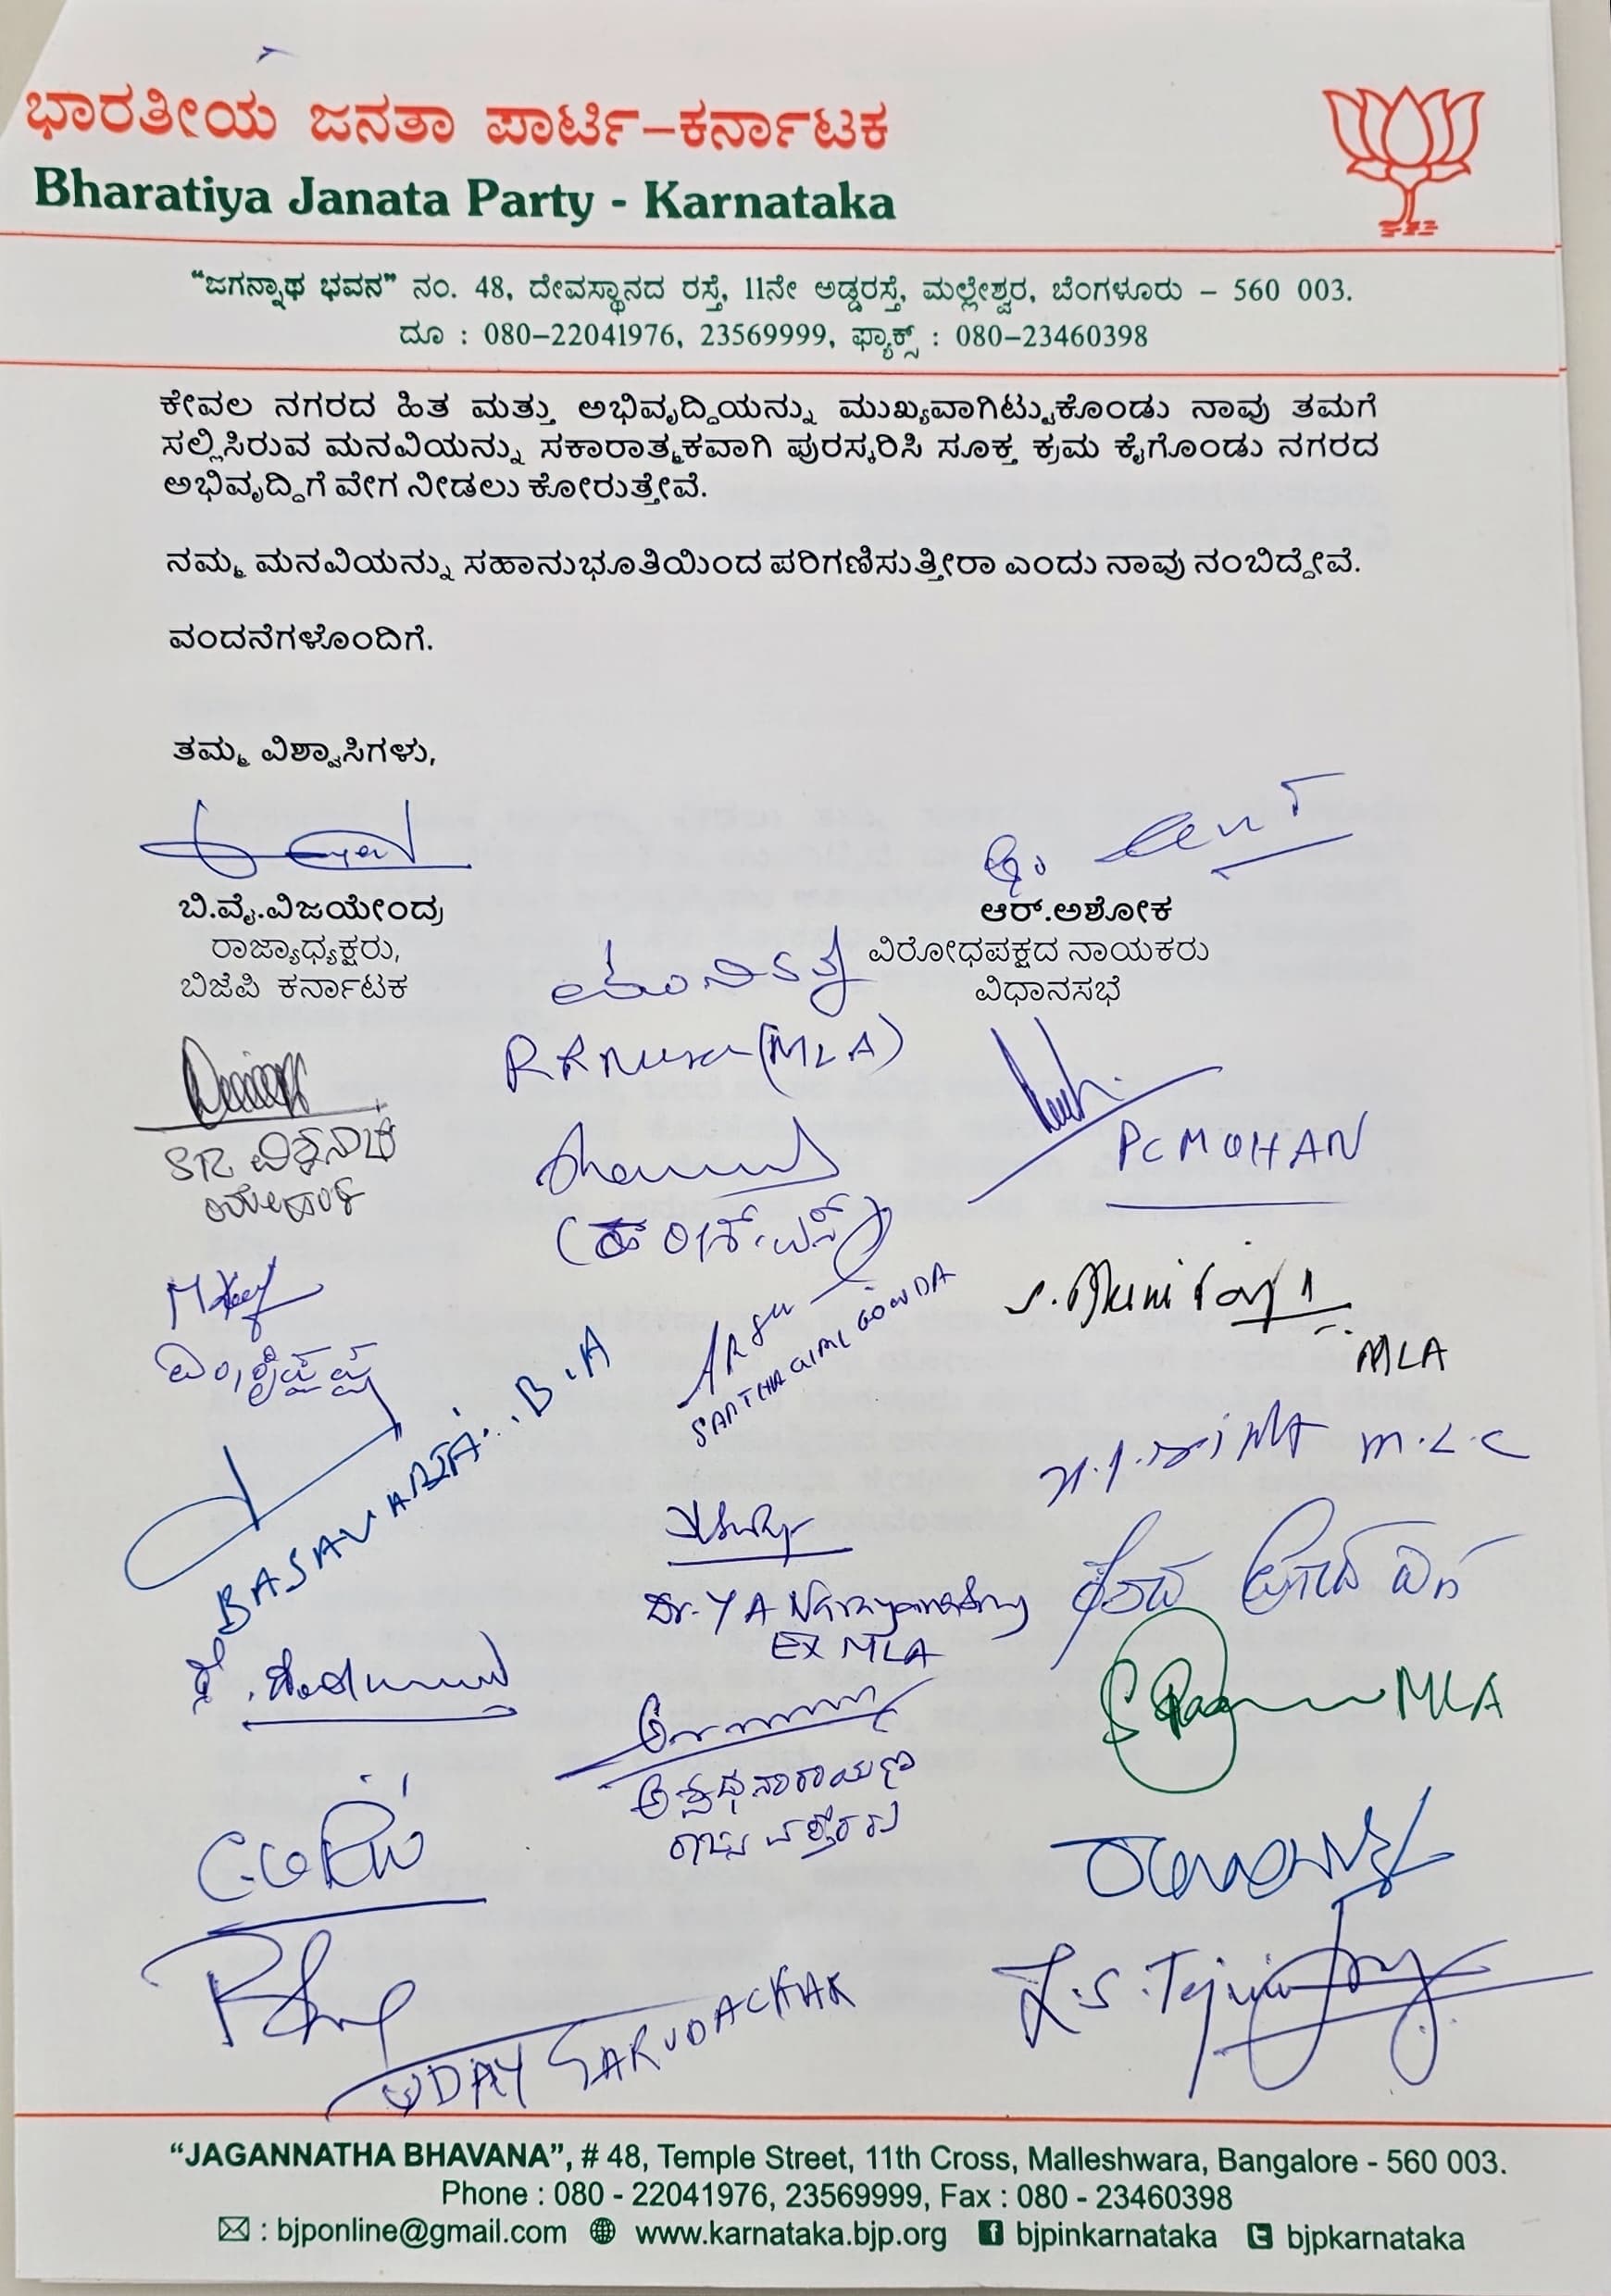 ಭಾರತೀಯ ಜನತಾ ಪಾರ್ಟಿ–ಕರ್ನಾಟಕ
Bharatiya Janata Party - Karnataka
“ಜಗನ್ನಾಥ ಭವನ” ನಂ. 48, ದೇವಸ್ಥಾನದ ರಸ್ತೆ, 11ನೇ ಅಡ್ಡರಸ್ತೆ, ಮಲ್ಲೇಶ್ವರ, ಬೆಂಗಳೂರು – 560 003.
ದೂ : 080–22041976, 23569999, ಫ್ಯಾಕ್ಸ್ : 080–23460398
ಕೇವಲ ನಗರದ ಹಿತ ಮತ್ತು ಅಭಿವೃದ್ದಿಯನ್ನು ಮುಖ್ಯವಾಗಿಟ್ಟುಕೊಂಡು ನಾವು ತಮಗೆ
ಸಲ್ಲಿಸಿರುವ ಮನವಿಯನ್ನು ಸಕಾರಾತ್ಮಕವಾಗಿ ಪುರಸ್ಕರಿಸಿ ಸೂಕ್ತ ಕ್ರಮ ಕೈಗೊಂಡು ನಗರದ
ಅಭಿವೃದ್ದಿಗೆ ವೇಗ ನೀಡಲು ಕೋರುತ್ತೇವೆ.
ನಮ್ಮ ಮನವಿಯನ್ನು ಸಹಾನುಭೂತಿಯಿಂದ ಪರಿಗಣಿಸುತ್ತೀರಾ ಎಂದು ನಾವು ನಂಬಿದ್ದೇವೆ.
ವಂದನೆಗಳೊಂದಿಗೆ.
ತಮ್ಮ ವಿಶ್ವಾಸಿಗಳು,
ಬಿ.ವೈ.ವಿಜಯೇಂದ್ರ
ರಾಜ್ಯಾಧ್ಯಕ್ಷರು,
ಬಿಜೆಪಿ ಕರ್ನಾಟಕ
ಆರ್.ಅಶೋಕ
ವಿರೋಧಪಕ್ಷದ ನಾಯಕರು
ವಿಧಾನಸಭೆ
ಮುನಿರತ್ನ
(MLA)
SR ವಿಶ್ವನಾಥ್
PC MOHAN
S. Muniraju
MLA
SAPTHAGIRI GOWDA
BASAVARAJ
M.L.C
Dr. Y A Narayanaswamy
EX MLA
MLA
ಅಶ್ವಥನಾರಾಯಣ
UDAY GARUDACHAR
L.S. Tejasvi
“JAGANNATHA BHAVANA”, # 48, Temple Street, 11th Cross, Malleshwara, Bangalore - 560 003.
Phone : 080 - 22041976, 23569999, Fax : 080 - 23460398
: bjponline@gmail.com www.karnataka.bjp.org bjpinkarnataka bjpkarnataka